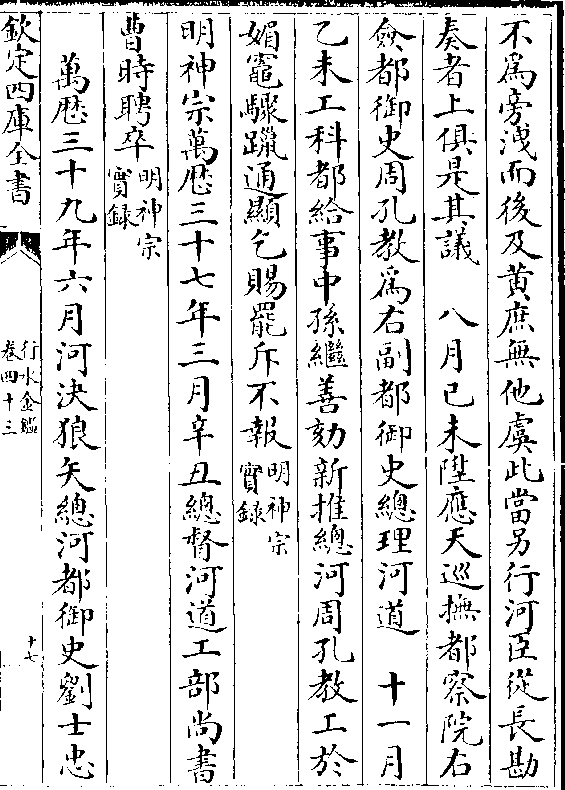 不爲旁洩而後及黄庶無他虞此當另行河臣從長勘
奏者上俱是其議　八月己未陞應天巡撫都察院右
僉都御史周孔教爲右副都御史總理河道　十一月
乙未工科都給事中孫繼善劾新推總河周孔教工於
媚竈驟躐通顯乞賜罷斥不報明神宗實録
明神宗萬厯三十七年三月辛丑總督河道工部尚書
曹時聘卒明神宗實録
萬厯三十九年六月河決狼矢總河都御史劉士忠
欽定四庫全書
行水金鑑
卷四十三
十七